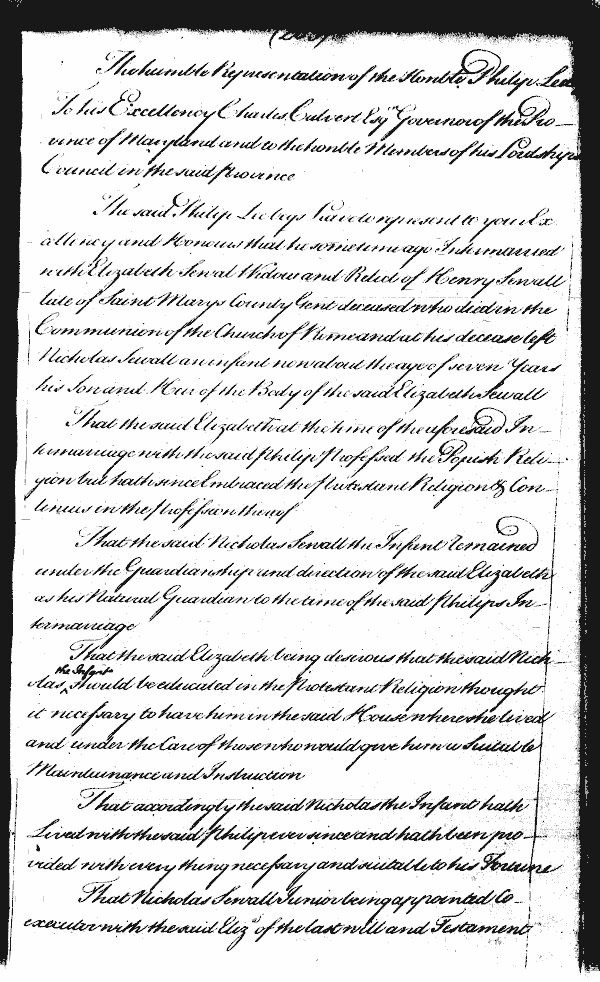 The humble Representation of the Honble. Philip Lee
To his Excellency Charles Calvert Esqr. Governor of the Pro-
vince of Maryland and to the honble Members of his Lordships
Council in the said Province
The said Philip Lee begs leave to represent to your Ex
cellency and Honours that he sometime ago Intermarried
with Elizabeth Sewal Widow and Relict of Henry Sewall
late of Saint Marys County Gent deceased who died in the
Communion of the Church of Rome and at his decease left
Nicholas Sewall an infant now about the age of seven Years
his Son and Heir of the Body of the said Elizabeth Sewall
That the said Elizabeth at the time of the aforesaid In-
termarriage with the said Philip Professed the Popish Reli-
gion but hath since Embraced the Protestant Religion & Con-
tinues in the Profession thereof
That the said Nicholas Sewall the Infant remained
under the Guardianship and direction of the said Elizabeth
as his Natural Guardian to the time of the said Philips In-
termarriage
That the said Elizabeth being desirous that the said Nich-
the Infant
olas should be educated in the Protestant Religion thought
it necessary to have him in the said House where she lived
and under the Care of those who would give him a Suitable
Maintainance and Instruction
That accordingly the said Nicholas the Infant hath
Lived with the said Philip ever since and hath been pro-
vided with every thing necessary and suitable to his Fortune
That Nicholas Sewall Junior being appointed Co-
executor with the said Eliza of the last will and Testament